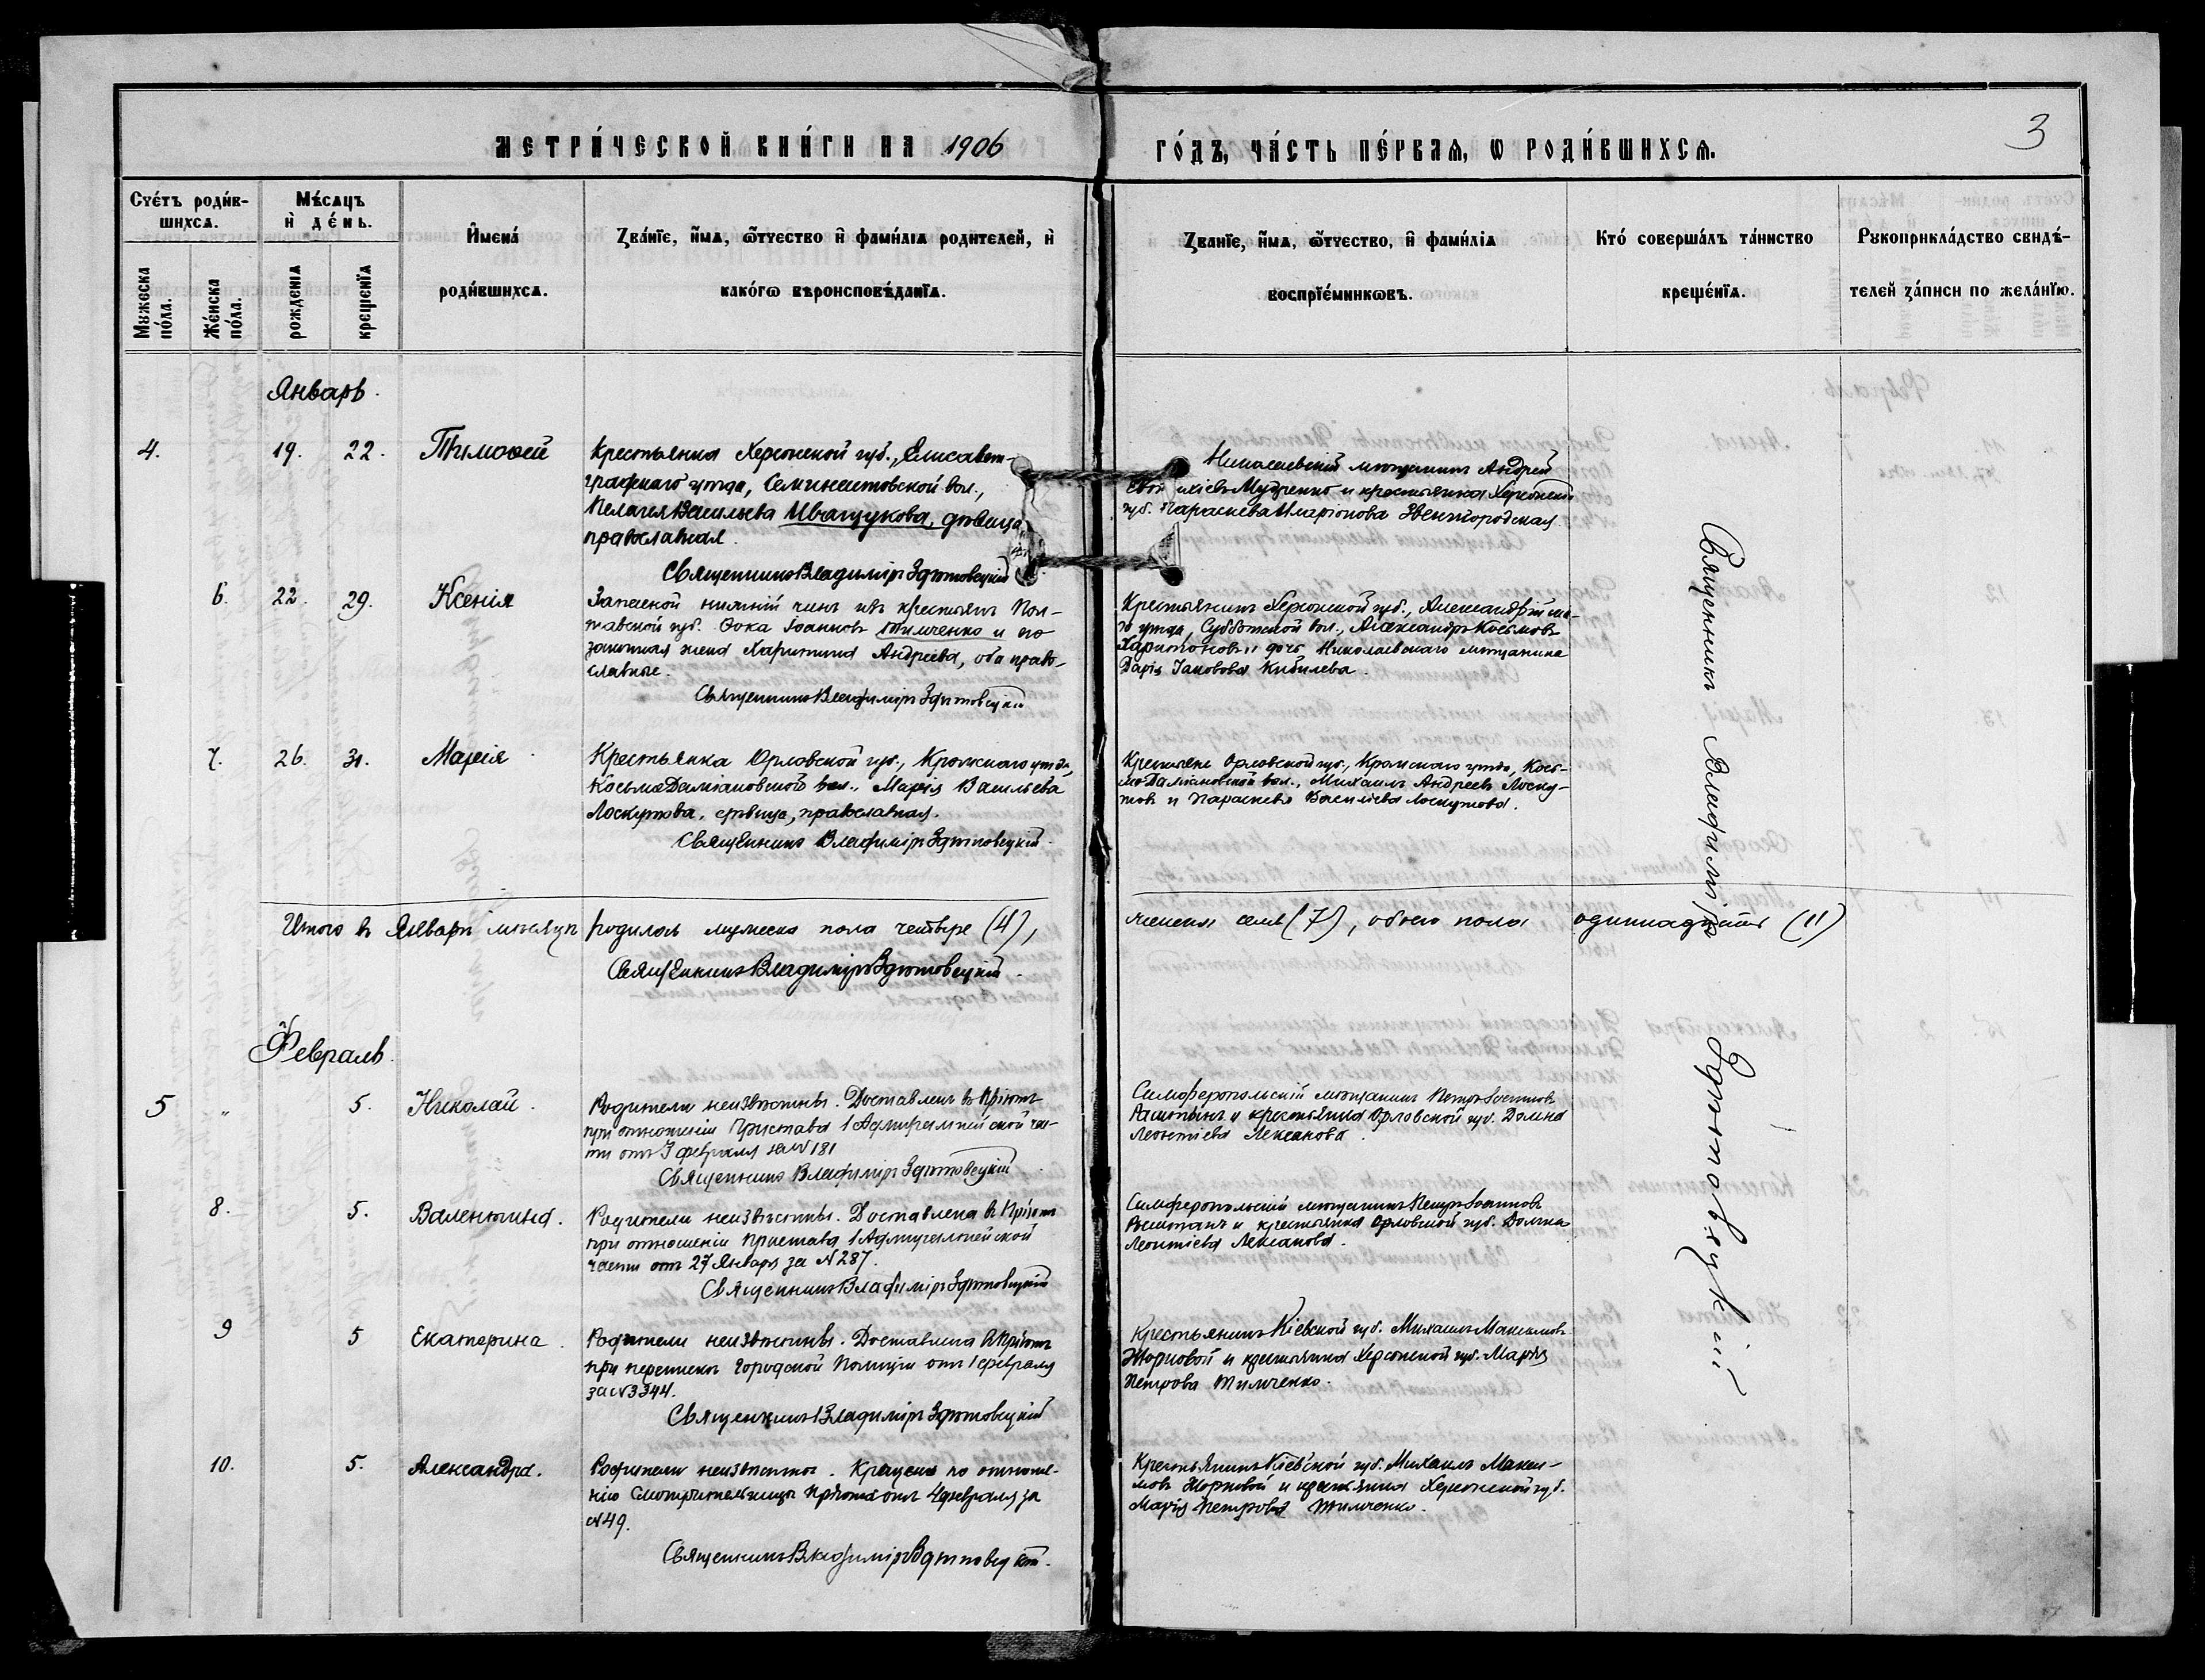 МЕТРИ́ЧЕСКОЙ КНИ́ГИ НА 1906 ГО́ДЪ, ЧА́СТЬ ПЕ́РВАѦ, Ѡ РОДИ́ВШИХСѦ.
3
Сче́тъ роди́в-
шихсѧ.
Мꙋжеска по́ла.
Же́нска по́ла.
Мѣ́сѧцъ
и҆ де́нь.
рожденїѧ
крещенїѧ
И҆мена́
роди́вшихсѧ.
Зва́нїе, и҆́мѧ, ѿчество и҆ фами́лїѧ родителей, и҆
како́гѡ вѣроисповѣ́данїѧ.
Званїе, и҆́мѧ, ѿчество, и҆ фами́лїѧ
воспрїе́мникѡвъ.
Кто́ соверша́лъ та́инство
креще́нїѧ.
Рꙋкоприкла́дство свидѣ́-
телей за́писи по жела́нїю.
Январь.
4. 19. 22. Тимоѳей
Крестьянка Херсонской губ., Елисавет-
градскаго уѣзда, вол.,
Пелагея Васильева Иващукова, дѣвица,
православная.
Священникъ Владиміръ Здѣтовецкій
Николаевскій мѣщанинъ Андрей
и крестьянка Херсонской
губ. Параскева Иларіонова Звенигородская
6. 22. 29. Ксенія
Запасной нижній чинъ изъ крестьянъ Пол-
тавской губ. Ѳока Іоанновъ Тимченко и его
законная жена Харитина Андреева, оба право-
славные.
Священникъ Владиміръ Здѣтовецкій
Крестьянинъ Херсонской губ., Александрійска-
го уѣзда, Субботской вол., Александръ Космовъ
Харитоновъ и дочь Николаевскаго мѣщанина
Дарія Іаковова Кибилева.
7. 26. 31. Марія
Крестьянка Орловской губ., Кромскаго уѣзда,
Космо-Даміановской вол., Марія Васильева
Лоскутова, дѣвица, православная.
Священникъ Владиміръ Здѣтовецкій.
Крестьяне Орловской губ., Кромскаго уѣзда, Кось-
мо-Даміановской вол., Михаилъ Андреевъ Лоску-
товъ и Параскева Васильева Лоскутова.
Итого въ Январѣ мѣсяцѣ родилось мужеска пола четыре (4), женска семь (7), обоего пола одиннадцать (11)
Священникъ Владиміръ Здѣтовецкій.
Февраль.
5 „ 5. Николай.
Родители неизвѣстны. Доставленъ въ Пріютъ
при отношеніи Пристава 1 Адмиралтейской час-
ти отъ 3 февраля за № 181
Священникъ Владиміръ Здѣтовецкій
Симферопольскій мѣщанинъ Петръ Іоанновъ
и крестьянка Орловской губ. Домна
Леонтіева Лексанова.
8. 5. Валентина.
Родители неизвѣстны. Доставлена въ Пріютъ
при отношеніи Пристава 1 Адмиралтейской
части отъ 27 Января за № 287.
Священникъ Владиміръ Здѣтовецкій
Симферопольскій мѣщанинъ Петръ Іоанновъ
и крестьянка Орловской губ. Домна
Леонтіева Лексанова.
9 5 Екатерина.
Родители неизвѣстны. Доставлена въ Пріютъ
при перепискѣ Городской Полиціи отъ 1 февраля
за № 3344.
Священникъ Владиміръ Здѣтовецкій
Крестьянинъ Кіевской губ. Михаилъ Максимовъ
Жорновой и крестьянка Херсонской губ. Марія
Петрова Тимченко.
10. 5. Александра.
Родители неизвѣстны. Крещена по отноше-
нію Смотрительницы Пріюта отъ 4 февраля за
№ 49.
Священникъ Владиміръ Здѣтовецкій.
Крестьянинъ Кіевской губ. Михаилъ Макси-
мовъ Жорновой и крестьянка Херсонской губ.
Марія Петрова Тимченко.
Священникъ Владиміръ Здѣтовецкій